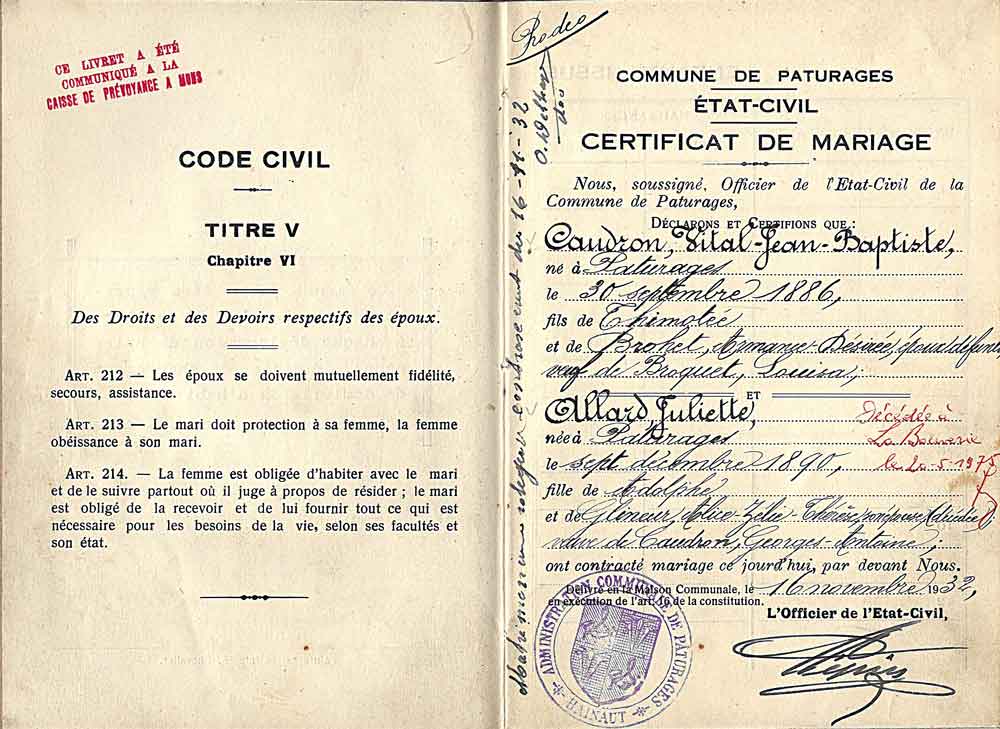 CE LIVRET A ÉTÉ
COMMUNIQUÉ A LA
CAISSE DE PRÉVOYANCE A MONS
CODE CIVIL
TITRE V
Chapitre VI
Des Droits et des Devoirs respectifs des époux.
ART. 212 — Les époux se doivent mutuellement fidélité,
secours, assistance.
ART. 213. — Le mari doit protection à sa femme, la femme
obéissance à son mari.
ART. 214. — La femme est obligée d'habiter avec le mari
et de le suivre partout où il juge à propos de résider ; le mari
est obligé de la recevoir et de lui fournir tout ce qui est
nécessaire pour les besoins de la vie, selon ses facultés et
son état.
du 16-11-'32
COMMUNE DE PATURAGES
ÉTAT-CIVIL
CERTIFICAT DE MARIAGE
Nous, soussigné, Officier de l'Etat-Civil de la
Commune de Paturages,
DÉCLARONS ET CERTIFIONS QUE :
Caudron, Vital-Jean-Baptiste,
né à Paturages
le 30 septembre 1886,
fils de Thimotée
et de Brohet, Armance Désirée, époux défunts
veuf de Broquet, Louisa ;
ET
Allard, Juliette,
née à Paturages
le sept décembre 1890,
fille de Adolphe
et de Gleneur, Alice Zélie Thérèse, son épouse,
veuve de Caudron, Georges-Antoine ;
Décédée à
La Bouverie
le 20-5-1975
ont contracté mariage ce jourd'hui, par devant Nous.
Délivré en la Maison Communale, le 16 novembre 1932,
en exécution de l'art. 16 de la constitution.
L'Officier de l'Etat-Civil,
ADMINISTRATION COMMUNALE DE PATURAGES
HAINAUT